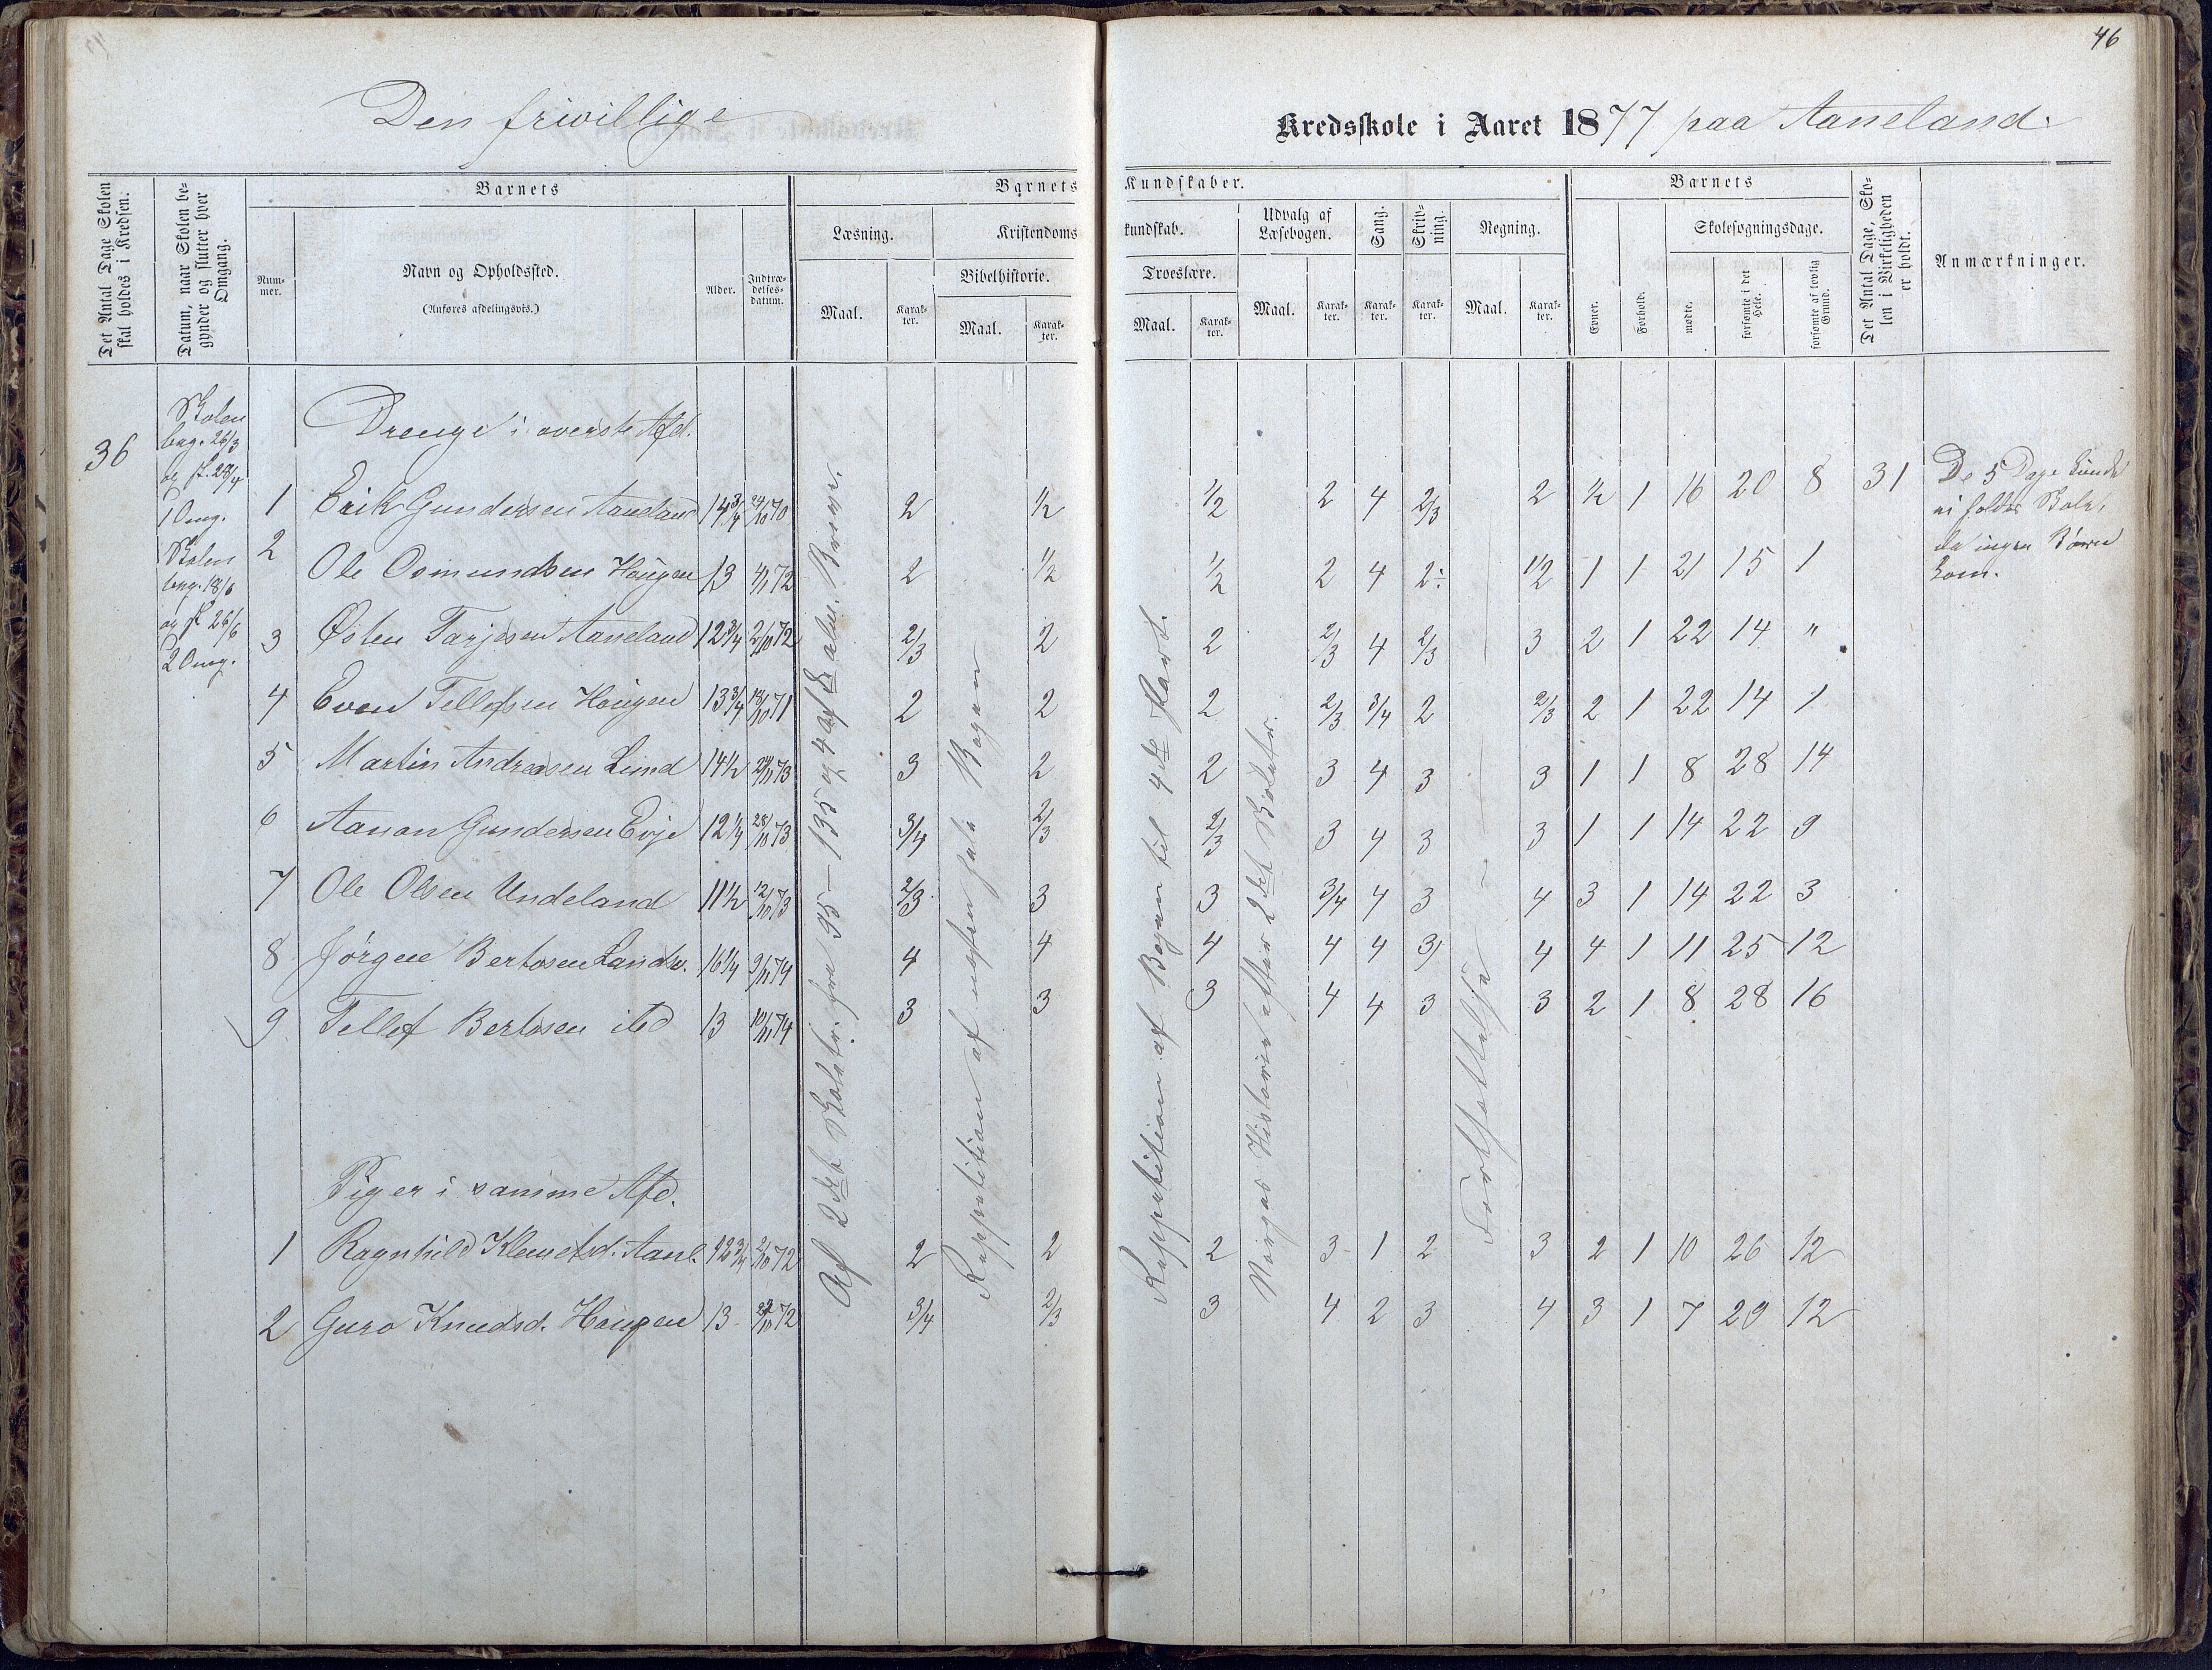 46
Den frivillige Kredsskole i Aaret 1877 paa Aaneland.
Det Antal Dage Skolen skal holdes i Kredsen.
Datum, naar Skolen begynder og slutter hver Omgang.
Barnets
Nummer.
Navn og Opholdssted.
(Anføres afdelingsvis.)
Alder.
Indtrædelsesdatum.
Barnets Kundskaber.
Læsning.
Maal.
Karakter.
Kristendomskundskab.
Bibelhistorie.
Maal.
Karakter.
Troeslære.
Maal.
Karakter.
Udvalg af Læsebogen.
Maal.
Karakter.
Sang.
Karakter.
Skrivning.
Karakter.
Regning.
Maal.
Karakter.
Barnets
Evner.
Forhold.
Skolesøgningsdage.
mødte.
forsømte i det Hele.
forsømte af lovlig Grund.
Det Antal Dage, Skolen i Virkeligheden er holdt.
Anmærkninger.
36
Skolen
beg. 26/3
og sl. 28/4
1 Omg.
Skolen
beg. 18/6
og sl. 26/6
2 Omg.
Drenge i øverste Afd.
1 Erik Gundersen Aaneland 14 3/4 24/10 70 2 1/2 1/2 2 4 2/3 2 1/2 1 16 20 8 31
2 Ole Osmundsen Haugen 13 4/11 72 2 1/2 1/2 2 4 2÷ 1/2 1 1 21 15 1
3 Østen Tarjesen Aaneland 12 3/4 2/10 72 2/3 2 2 2/3 4 2/3 3 2 1 22 14 "
4 Even Tellefsen Haugen 13 3/4 18/10 71 2 2 2 2/3 3/4 2 2/3 2 1 22 14 1
5 Martin Andreasen Lund 14 1/2 73 3 2 2 3 4 3 3 1 1 8 28 14
6 Aanon Gundersen Evje 12 1/4 28/10 73 3/4 2/3 2/3 3 4 3 3 1 1 14 22 9
7 Ole Olsen Undeland 11 1/2 12/10 73 2/3 3 3 3/4 4 3 4 3 1 14 22 3
8 Jörgen Bertosen 16 1/4 9/11 74 4 4 4 4 4 3 4 4 1 11 25 12
9 Tellef Bertosen ibd 13 10/11 74 3 3 3 4 4 3 3 2 1 8 28 16
Piger i samme Afd.
1 Ragnhild Klemetsd. Aanl. 12 3/4 2/10 72 2 2 2 3 1 2 3 2 1 10 26 12
2 Guro Knudsd. Haugen 13 72 3/4 2/3 3 4 2 3 4 3 1 7 29 12
Af 2det Skoletr. fra 95–135 og 4 af
Reppetition af næsten hele Bogen
Reppetition af Bogen til 4de Part.
Norges Historie efter 2det Skoletr.
Fortsættelse
De 5 Dage kunde
ei holdes Skole,
da ingen Börn
kom.